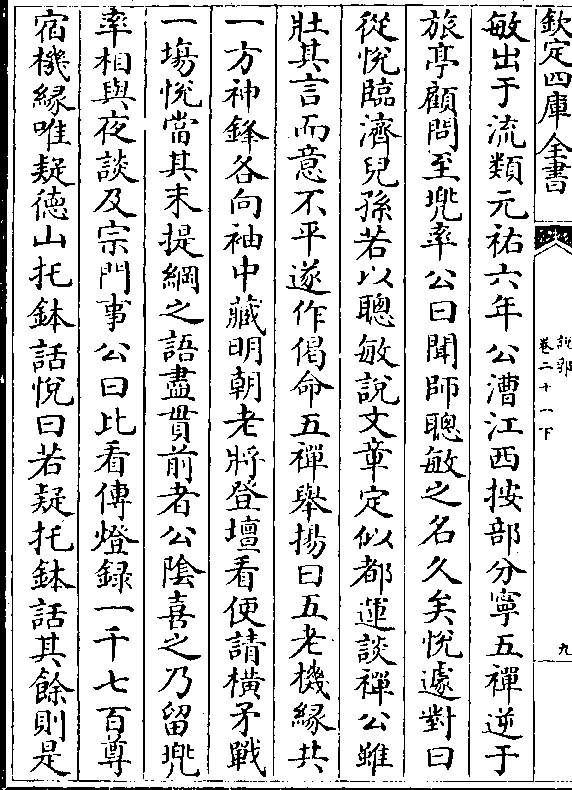 欽定四庫全書
說郛
卷二十一下
九
敏出于流類元祐六年公漕江西按部分寧五禪逆于
旅亭顧問至兠率公曰聞師聰敏之名久矣悅遽對曰
從悅臨濟兒孫若以聰敏說文章定似都運談禪公雖
壯其言而意不平遂作偈命五禪舉揚曰五老機緣共
一方神鋒各向袖中藏明朝老將登壇看便請橫矛戰
一塲悅當其末提綱之語盡貫前者公隂喜之乃留兠
率相與夜談及宗門事公曰比看傳燈録一千七百尊
宿機緣唯疑徳山托鉢話悅曰若疑托鉢話其餘則是